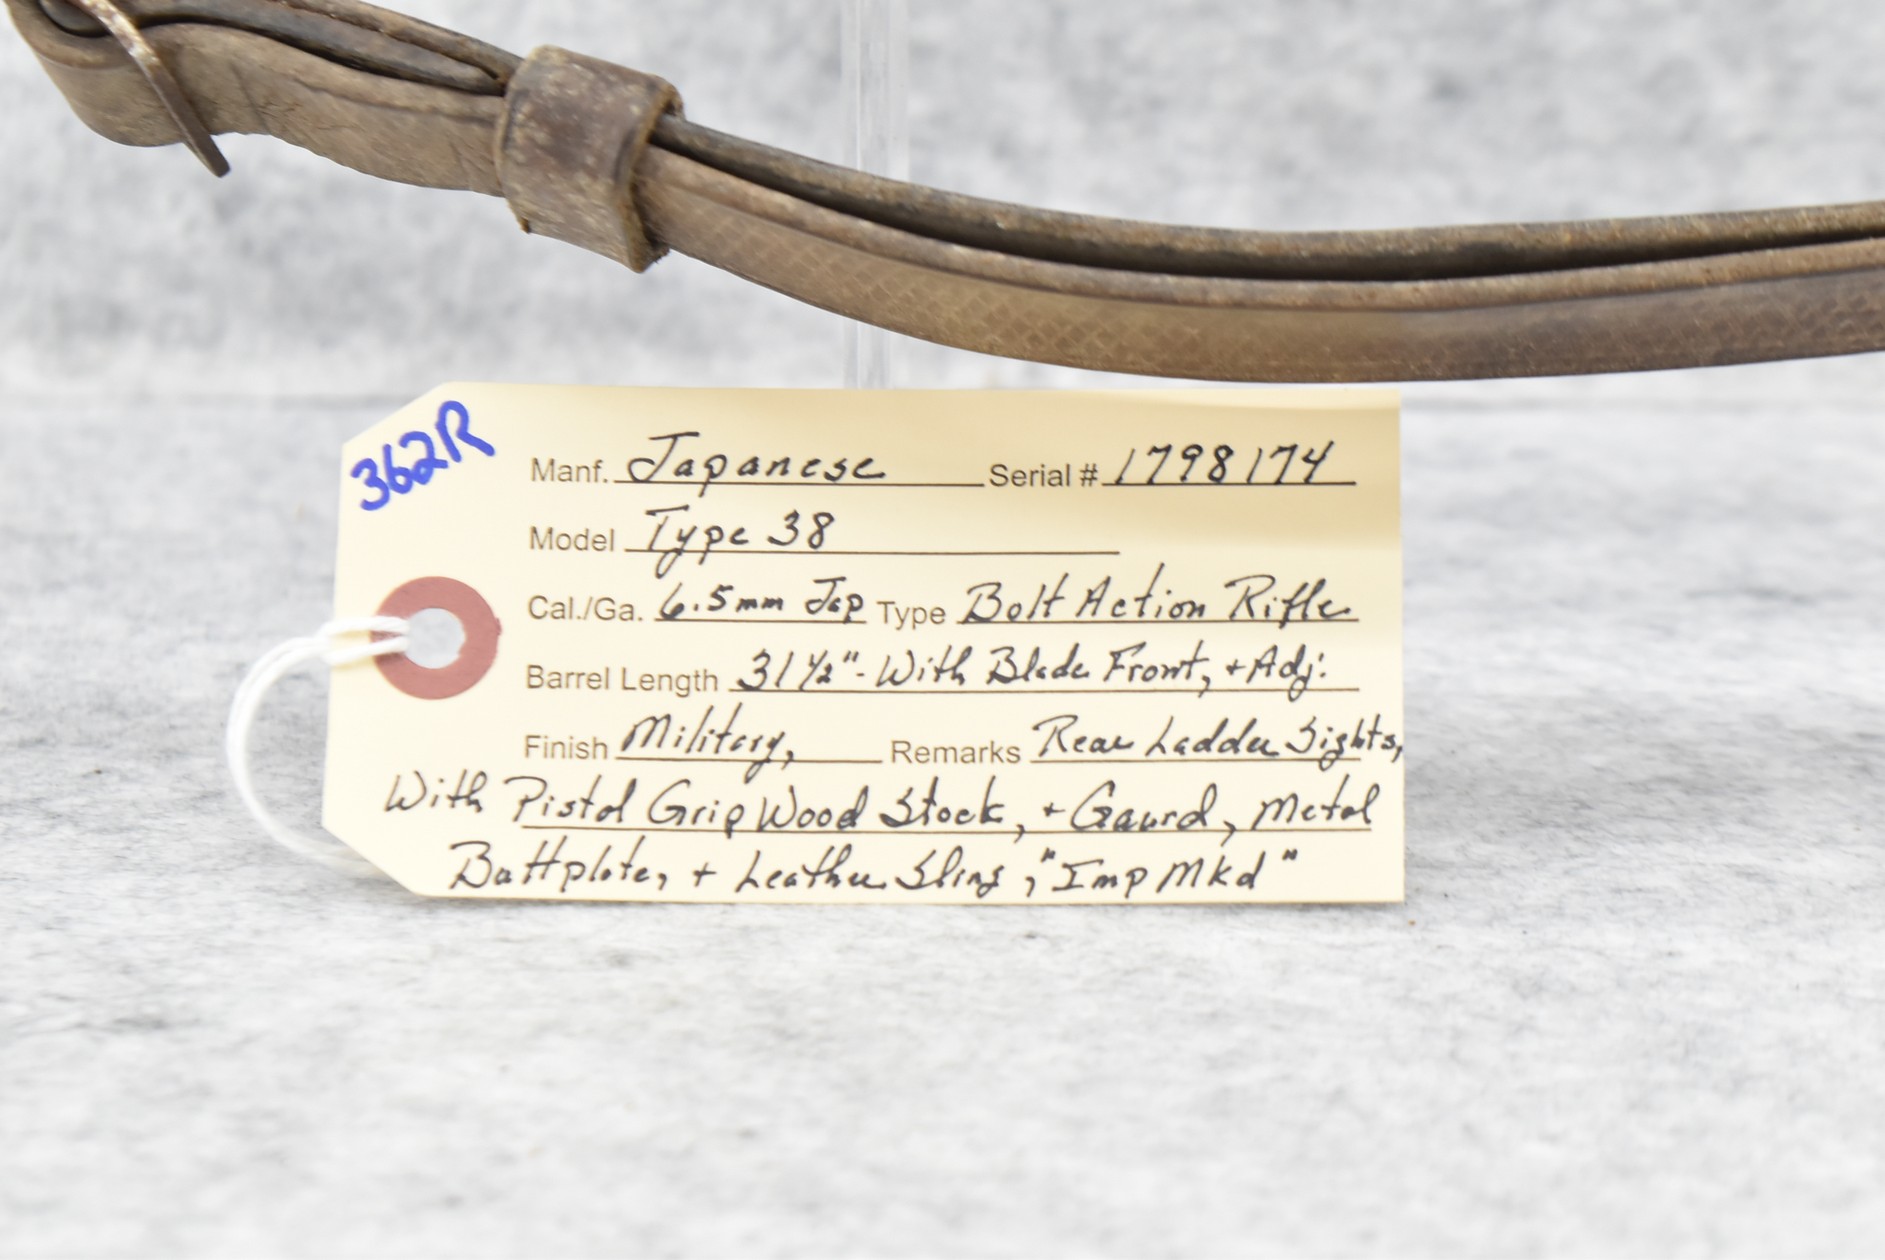 362R
Manf. Japanese Serial # 1798174
Model Type 38
Cal./Ga. 6.5mm Jap Type Bolt Action Rifle
Barrel Length 31 1/2"- With Blade Front, + Adj.
Finish Military, Remarks Rear Ladder Sights,
With Pistol Grip Wood Stock, + Gaurd, Metal
Buttplate, + Leather Sling, "Imp Mkd"